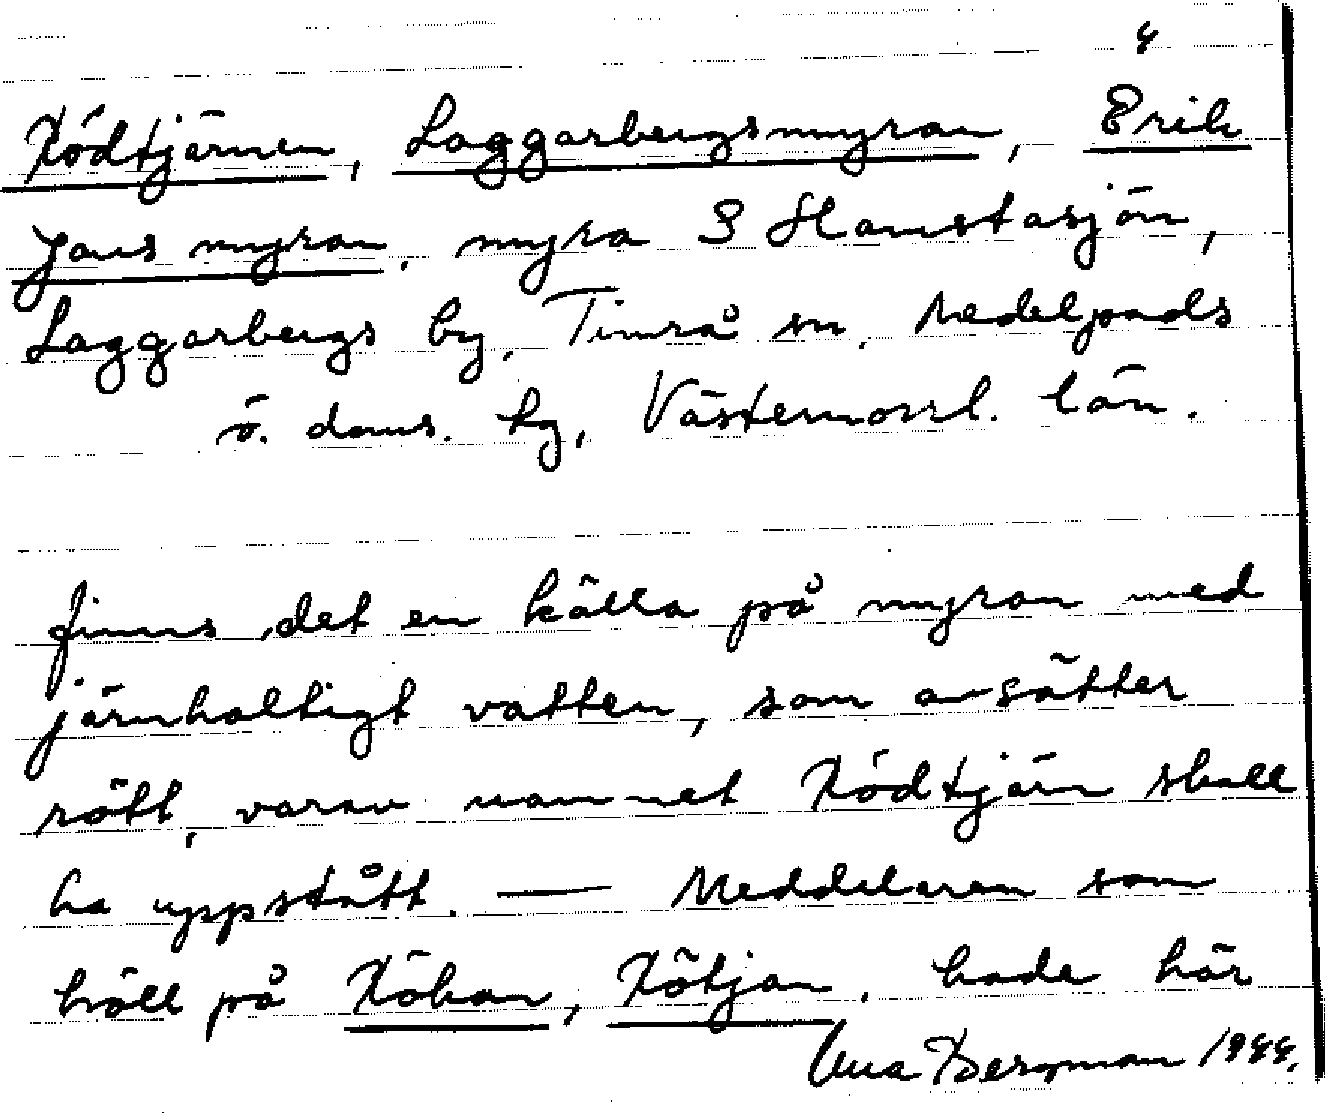 4
Rödtjärnen, Laggarbergsmyran, Erik
Jans myran, myra S Hamstasjön,
Laggarbergs by, Timrå sn, Medelpads
ö. doms. tg, Västernorrl. län.
finns det en källa på myran med
järnhaltigt vatten, som avsätter
rött, varav namnet Rödtjärn skall
ha uppstått. — Meddelaren som
höll på Rökan, Rötjan, hade här
Una Bergman 1944.